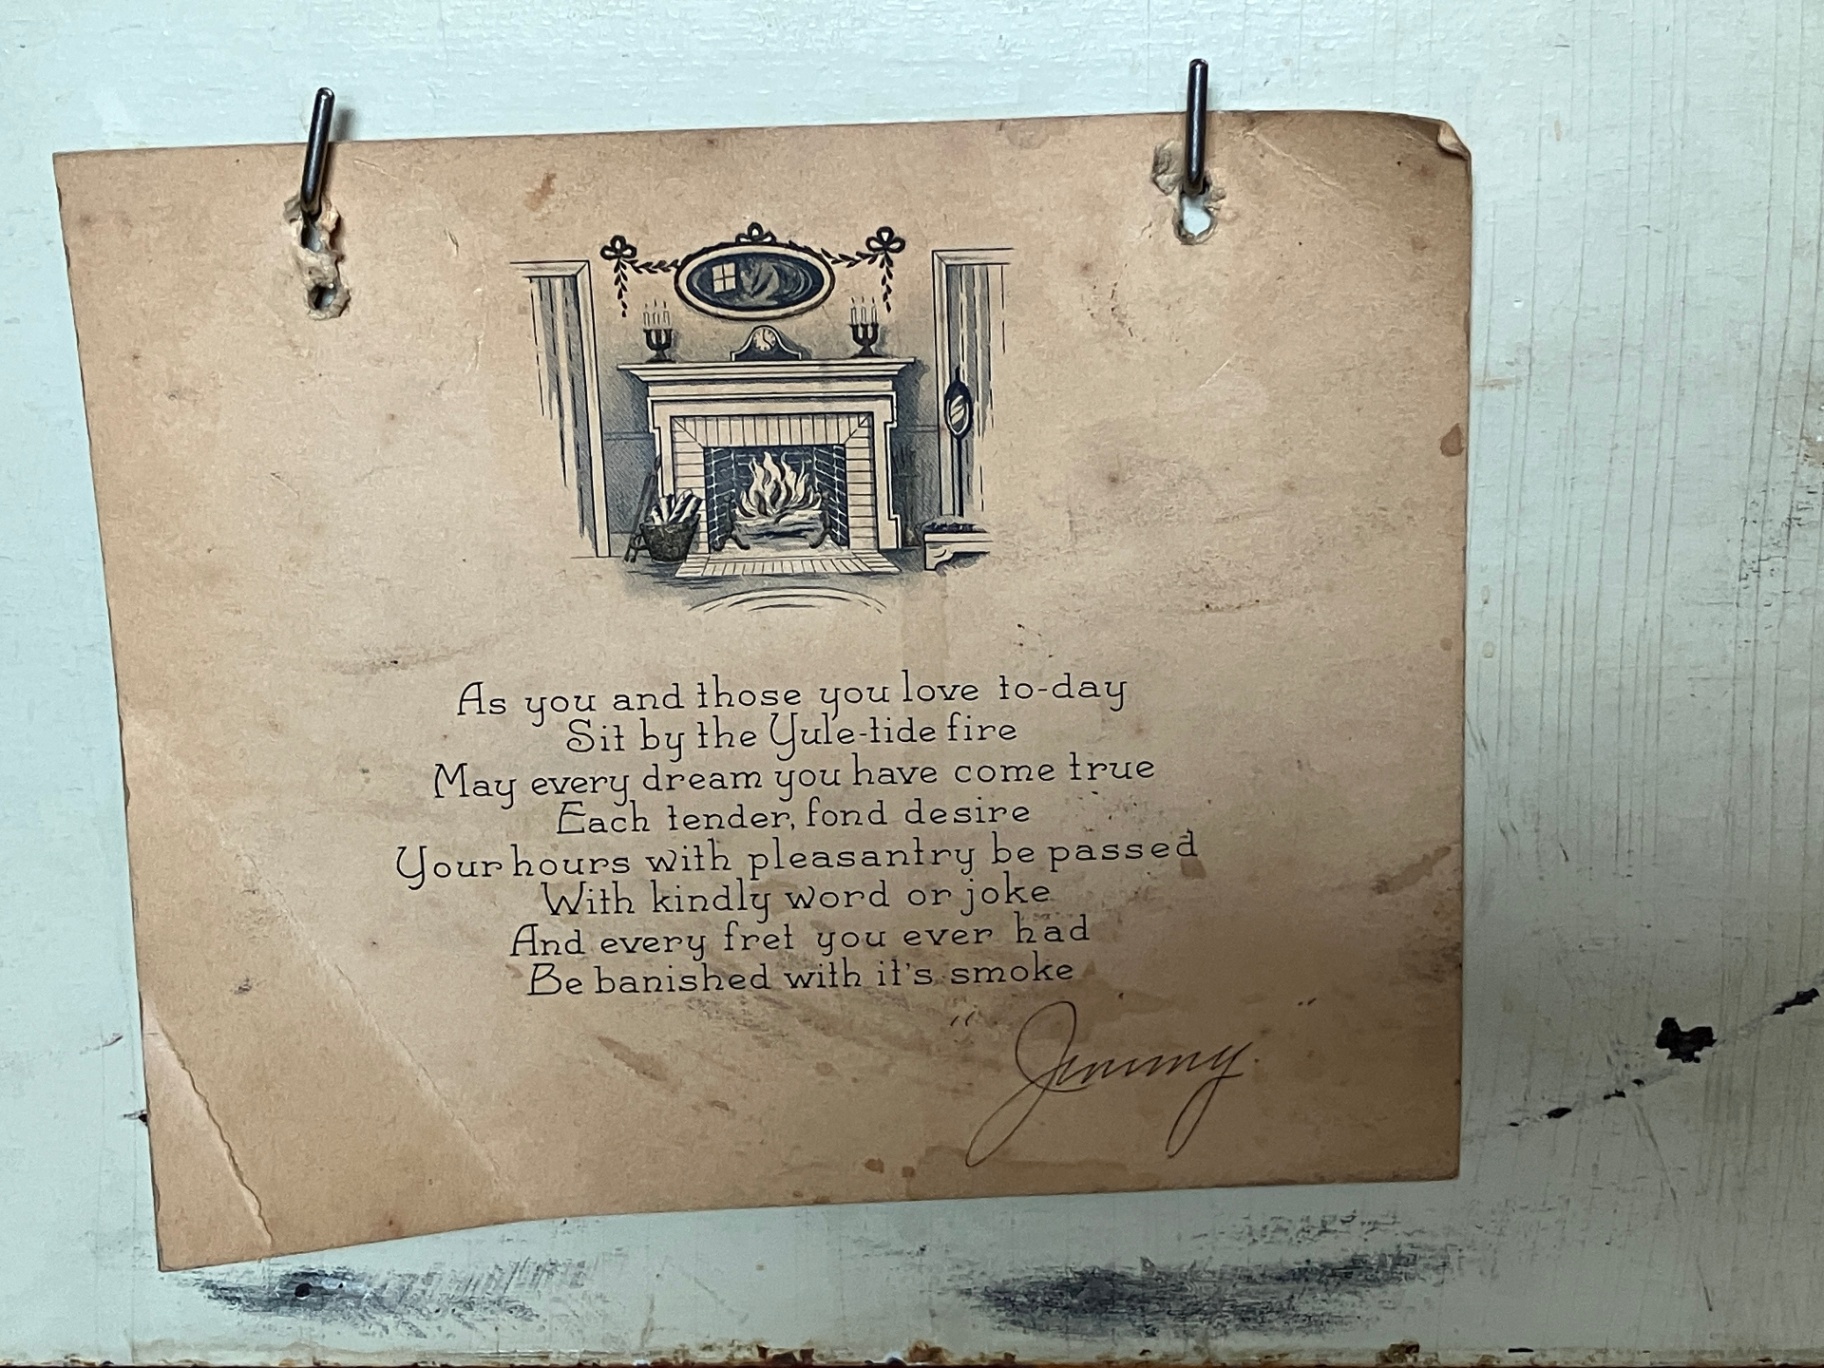 As you and those you love to-day
Sit by the Yule-tide fire
May every dream you have come true
Each tender, fond desire
Your hours with pleasantry be passed
With kindly word or joke
And every fret you ever had
Be banished with it's smoke
"Jimmy"